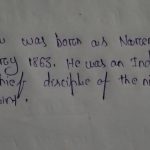 was born as Naren
1863. He was an Ind
disciple of the